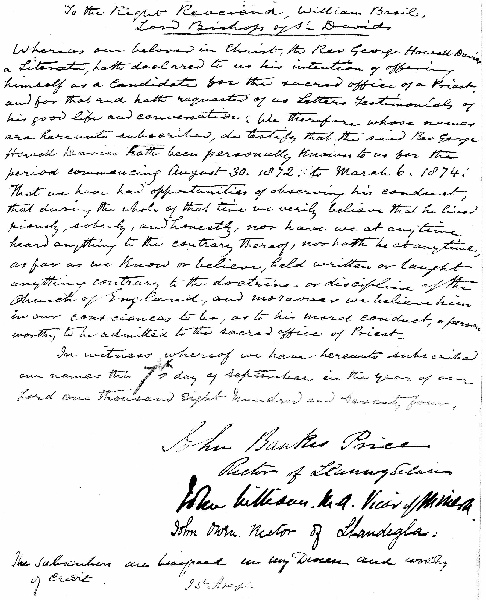 To the Right Reverend, William Basil,
Lord Bishop of St Davids
Whereas our beloved in Christ, the Rev George Howell Davies
a Literate, hath declared to us his intention of offering
himself as a Candidate for the sacred office of a Priest,
and for that end hath requested of us Letters Testimonial of
his good life and conversation: We therefore whose names
are hereunto subscribed, do testify that the said Rev George
Howell Davies hath been personally known to us for the
period commencing August 30. 1872. to March 6. 1874:
That we have had opportunities of observing his conduct,
that during the whole of that time we verily believe that he lived
piously, soberly, and honestly, nor have we at any time
heard anything to the contrary thereof, nor hath he at any time,
as far as we know or believe, held written or taught
anything contrary to the doctrine or discipline of the
Church of England, and moreover we believe him
in our consciences to be, as to his moral conduct, a person
worthy to be admitted to the sacred office of Priest.
In witness whereof we have hereunto subscribed
our names this 7th day of September in the year of our
Lord one thousand eight hundred and seventy four.
John Bankes Price
Rector of
John Williams, M.A. Vicar of
John Owen, Rector of Llandegla:
The Subscribers are in my and worthy
of Credit.